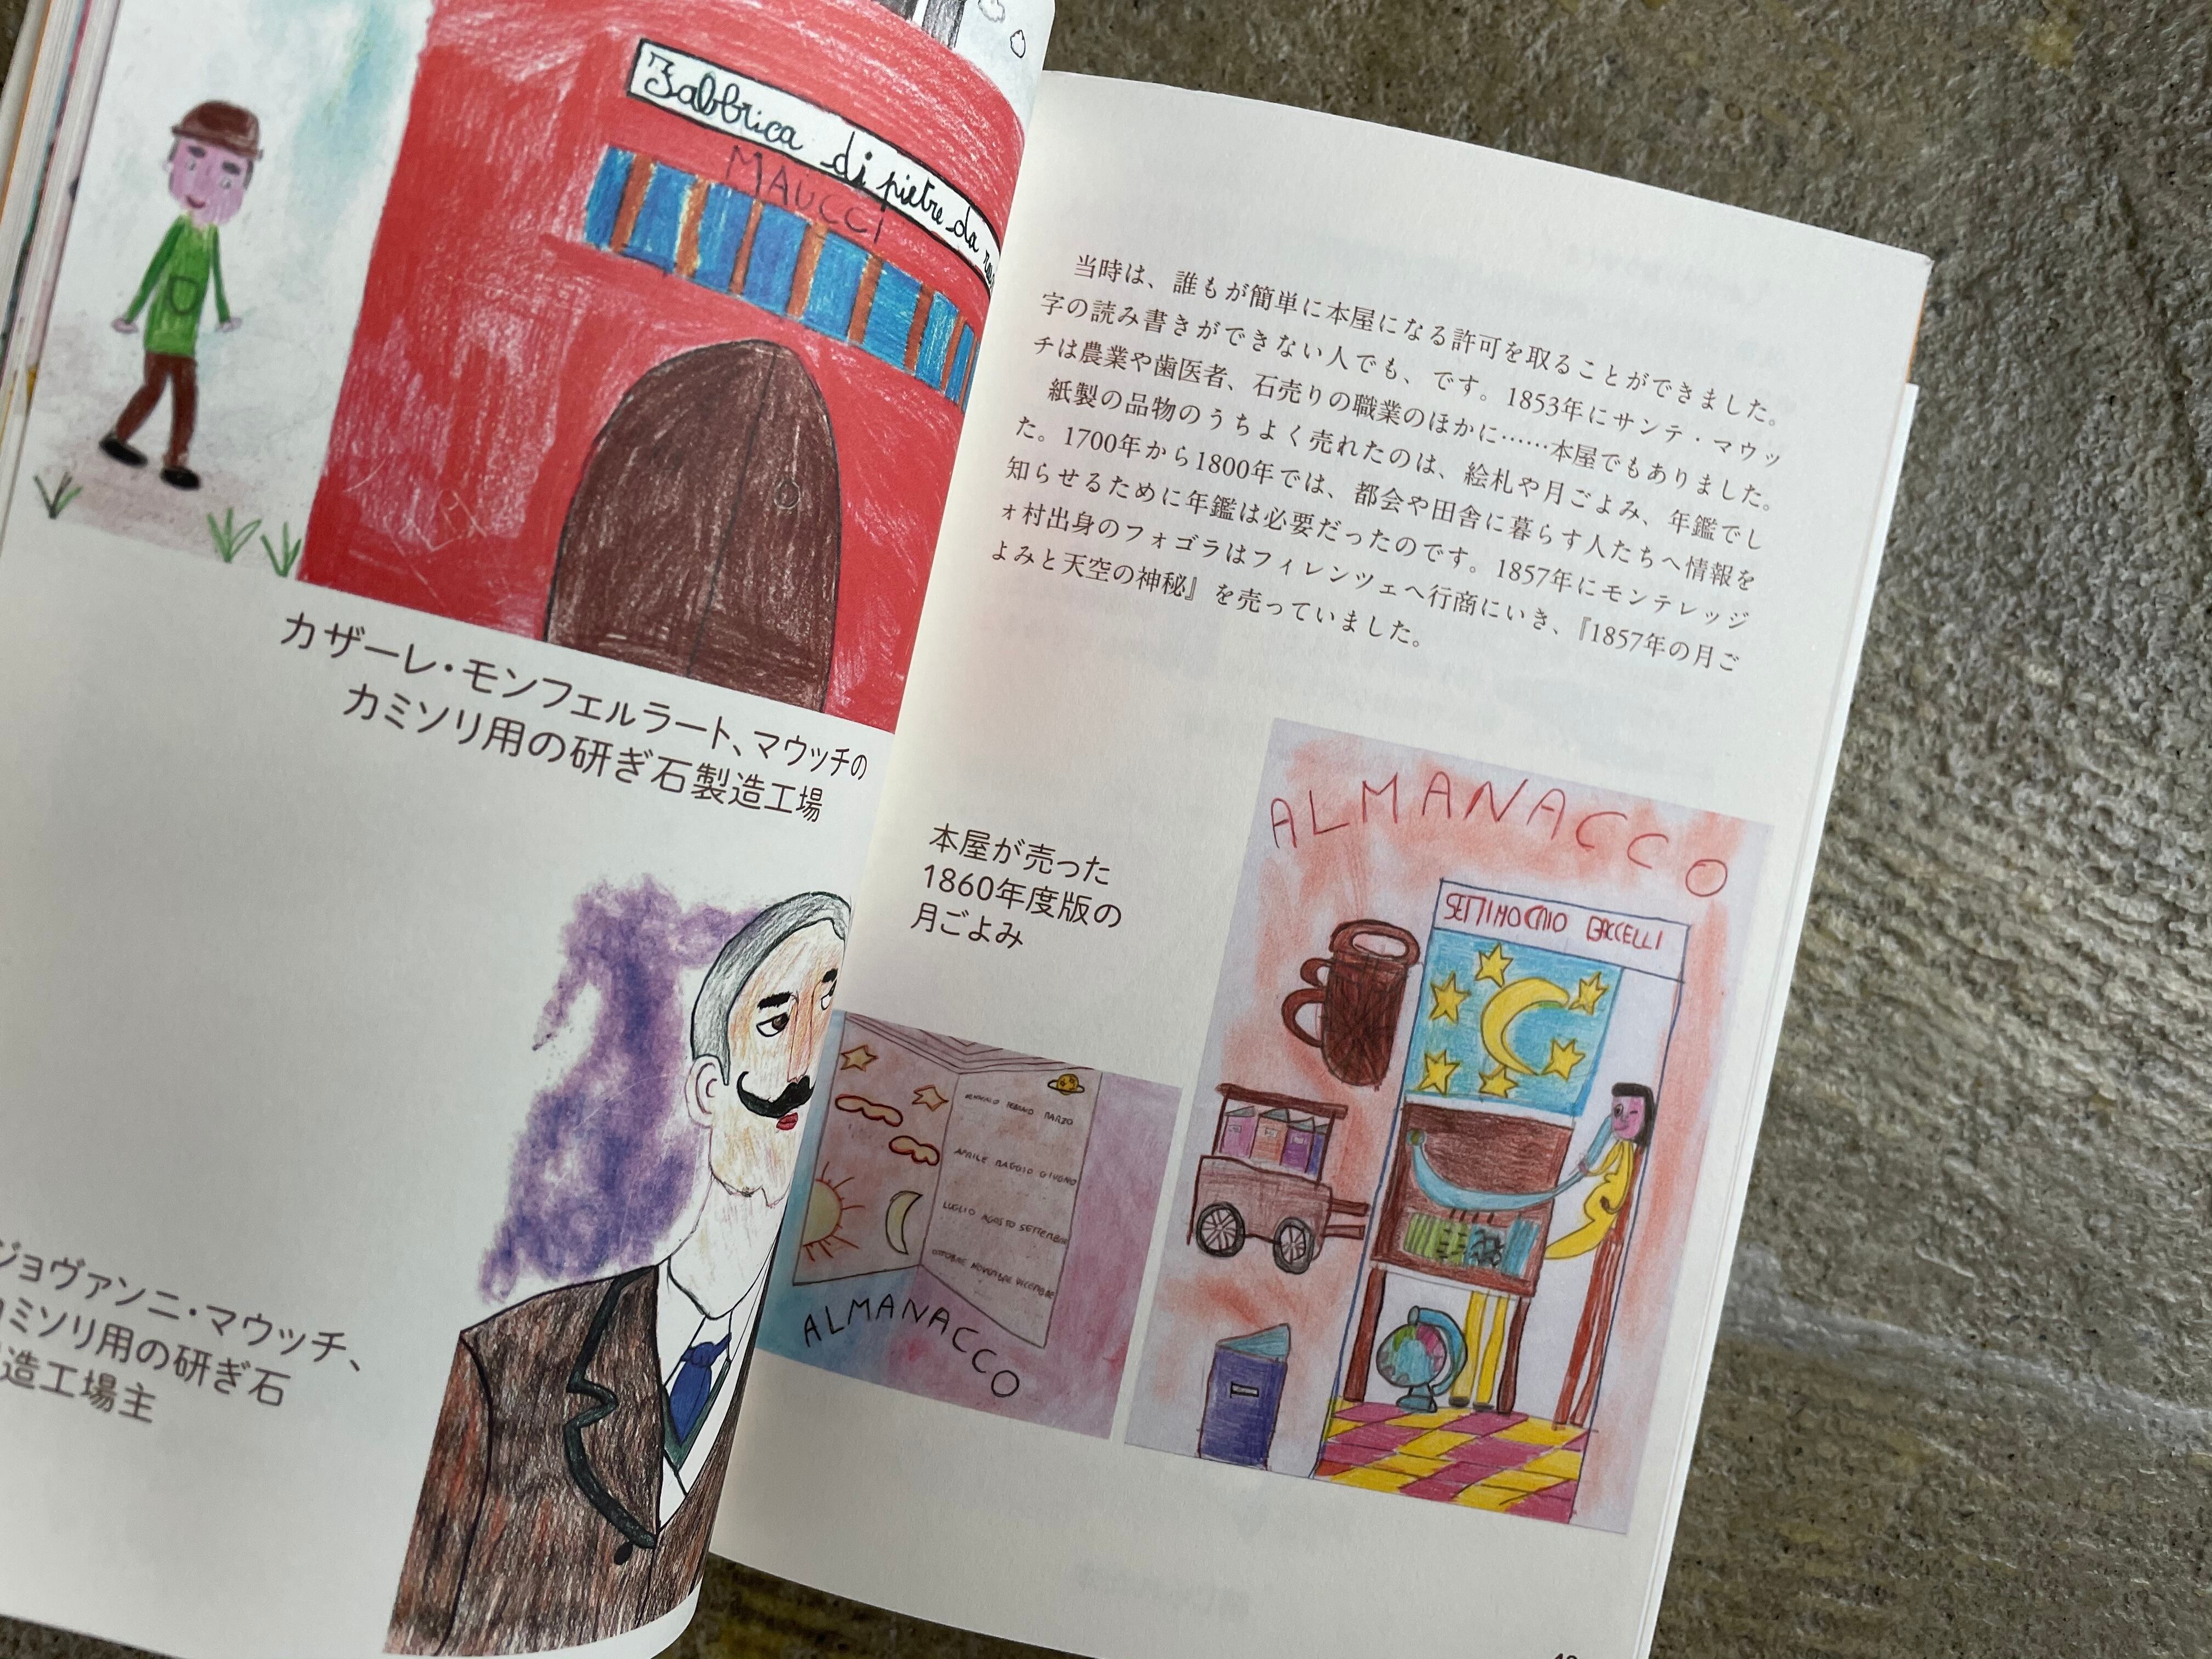 Fabbrica di pietre da
MAUCCI
カザーレ・モンフェルラート、マウッチの
カミソリ用の研ぎ石製造工場
ジョヴァンニ・マウッチ、
カミソリ用の研ぎ石
造工場主
当時は、誰もが簡単に本屋になる許可を取ることができました。
字の読み書きができない人でも、です。1853年にサンテ・マウッ
チは農業や歯医者、石売りの職業のほかに……本屋でもありました。
紙製の品物のうちよく売れたのは、絵札や月ごよみ、年鑑でし
た。1700年から1800年では、都会や田舎に暮らす人たちへ情報を
知らせるために年鑑は必要だったのです。1857年にモンテレッジ
ォ村出身のフォゴラはフィレンツェへ行商にいき、『1857年の月ご
よみと天空の神秘』を売っていました。
本屋が売った
1860年度版の
月ごよみ
GENNAIO FEBBRAIO MARZO
APRILE MAGGIO GIUGNO
LUGLIO AGOSTO SETTEMBRE
OTTOBRE NOVEMBRE DICEMBRE
ALMANACCO
ALMANACCO
SETTIMO CAIO BACCELLI